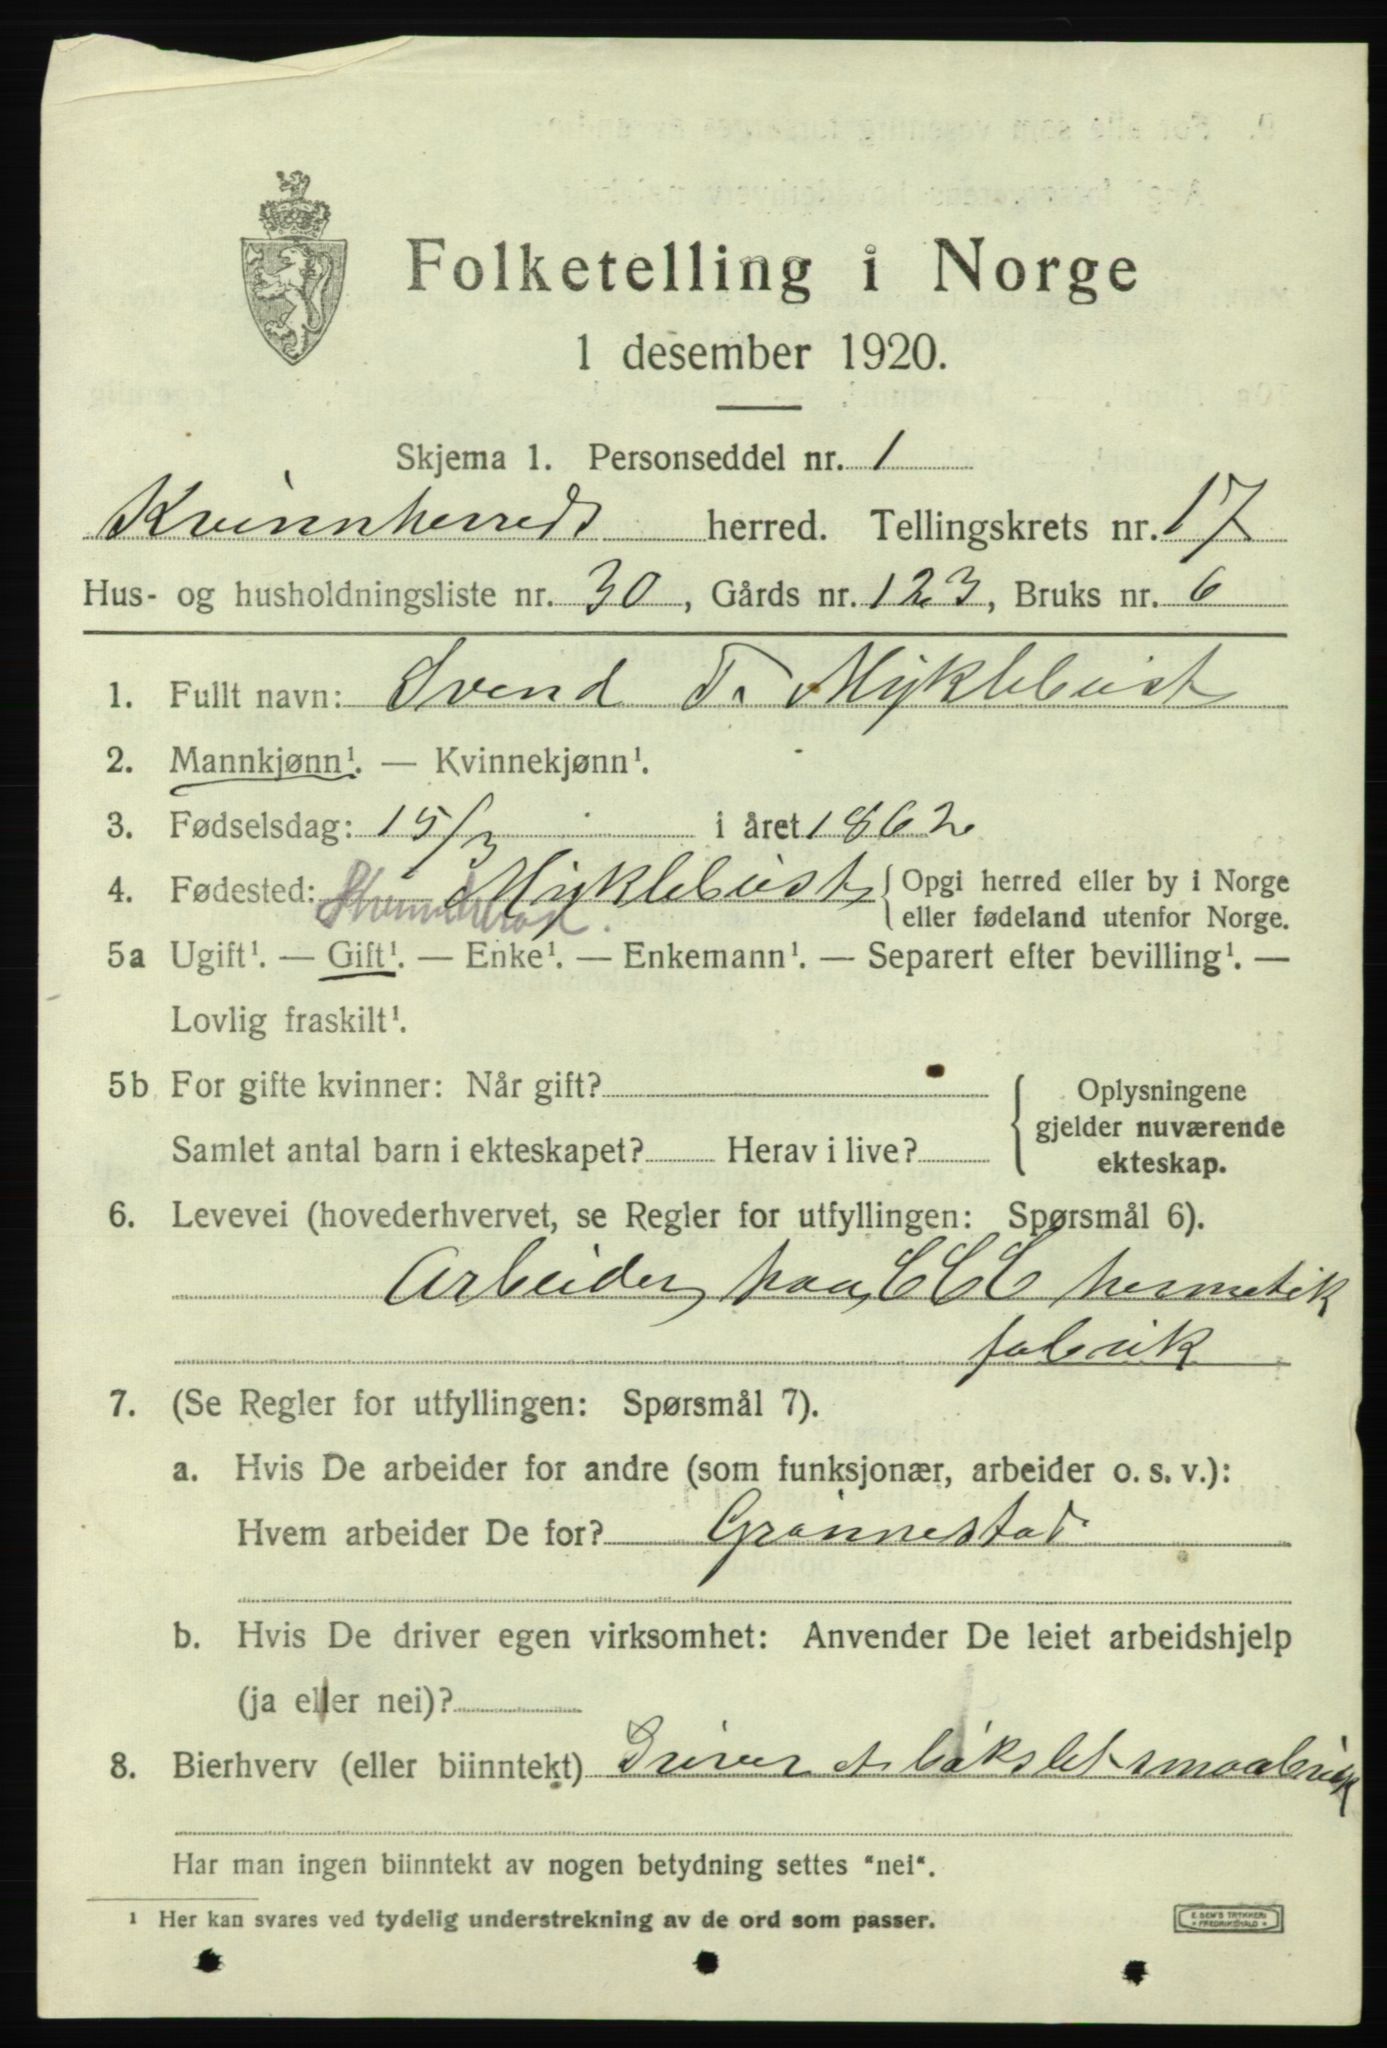 Folketelling i Norge
1 desember 1920.
Skjema 1. Personseddel nr. 1
Kvinnherreds herred. Tellingskrets nr. 17
Hus- og husholdningsliste nr. 30, Gårds nr. 123, Bruks nr. 6
1. Fullt navn: Svend T. Myklebust
2. Mannkjønn¹. — Kvinnekjønn¹.
3. Fødselsdag: 15/3 i året 1862
4. Fødested: Myklebust { Opgi herred eller by i Norge
eller fødeland utenfor Norge.
5a Ugift¹. — Gift¹. — Enke¹. — Enkemann¹. — Separert efter bevilling¹. —
Lovlig fraskilt¹.
5b For gifte kvinner: Når gift?
Samlet antal barn i ekteskapet? Herav i live?
Oplysningene
gjelder nuværende
ekteskap.
6. Levevei (hovederhvervet, se Regler for utfyllingen: Spørsmål 6).
Arbeider paa CCC hermetik
fabrik
7. (Se Regler for utfyllingen: Spørsmål 7).
a. Hvis De arbeider for andre (som funksjonær, arbeider o. s. v.):
Hvem arbeider De for? Grönnestad
b. Hvis De driver egen virksomhet: Anvender De leiet arbeidshjelp
(ja eller nei)?
8. Bierhverv (eller biinntekt) Driver et bökslet smaabruk
Har man ingen biinntekt av nogen betydning settes "nei".
¹ Her kan svares ved tydelig understrekning av de ord som passer.
E. SEM'S TRYKKERI
FREDRIKSHALD